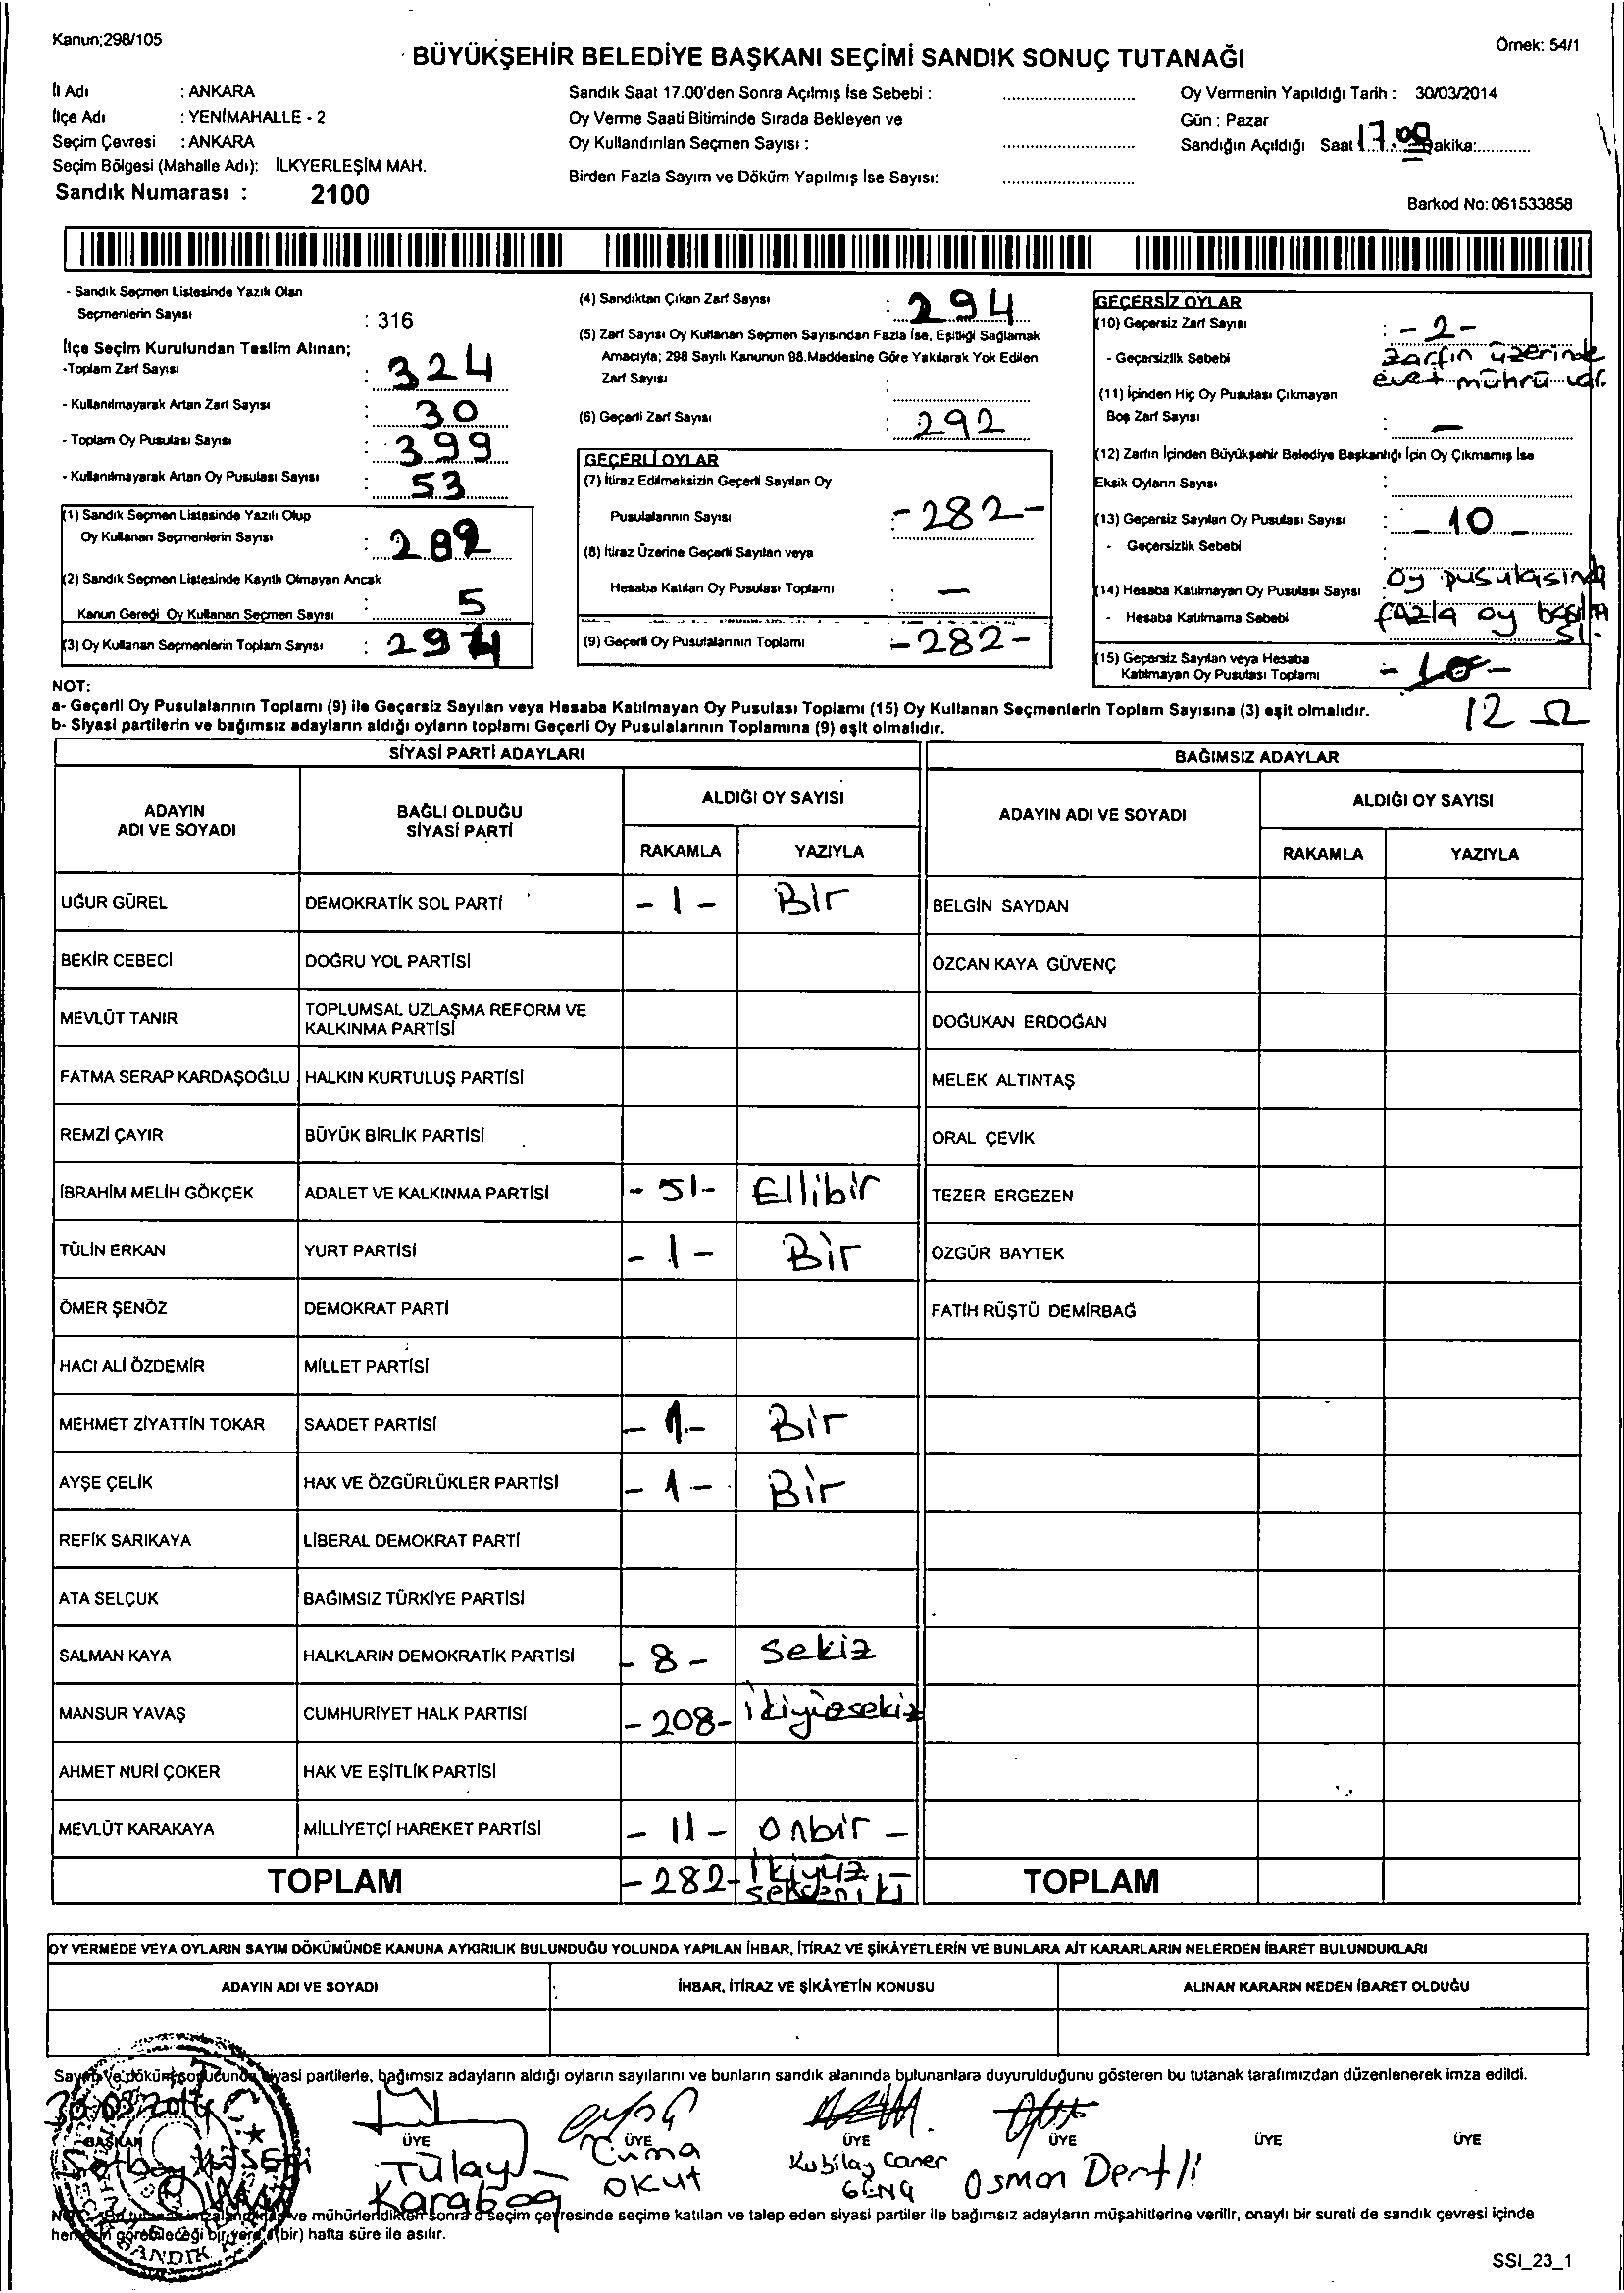 Kanun;298/105
Örnek: 54/1
BÜYÜKŞEHİR BELEDİYE BAŞKANI SEÇİMİ SANDIK SONUÇ TUTANAĞI
İl Adı : ANKARA
İlçe Adı : YENİMAHALLE - 2
Seçim Çevresi : ANKARA
Seçim Bölgesi (Mahalle Adı): İLKYERLEŞİM MAH.
Sandık Numarası : 2100
Sandık Saat 17.00'den Sonra Açılmış İse Sebebi :
Oy Verme Saati Bitiminde Sırada Bekleyen ve
Oy Kullandırılan Seçmen Sayısı :
Birden Fazla Sayım ve Döküm Yapılmış İse Sayısı:
Oy Vermenin Yapıldığı Tarih : 30/03/2014
Gün : Pazar
Sandığın Açıldığı Saat 17.00 Dakika:
Barkod No: 061533858
- Sandık Seçmen Listesinde Yazılı Olan
Seçmenlerin Sayısı : 316
İlçe Seçim Kurulundan Teslim Alınan;
-Toplam Zarf Sayısı : 324
- Kullanılmayarak Artan Zarf Sayısı : 30
- Toplam Oy Pusulası Sayısı : 399
- Kullanılmayarak Artan Oy Pusulası Sayısı : 53
(1) Sandık Seçmen Listesinde Yazılı Olup
Oy Kullanan Seçmenlerin Sayısı : 289
(2) Sandık Seçmen Listesinde Kayıtlı Olmayan Ancak
Kanun Gereği Oy Kullanan Seçmen Sayısı : 5
(3) Oy Kullanan Seçmenlerin Toplam Sayısı : 294
(4) Sandıktan Çıkan Zarf Sayısı : 294
(5) Zarf Sayısı Oy Kullanan Seçmen Sayısından Fazla İse, Eşitliği Sağlamak
Amacıyla; 298 Sayılı Kanunun 98.Maddesine Göre Yakılarak Yok Edilen
Zarf Sayısı :
(6) Geçerli Zarf Sayısı : 292
GEÇERLİ OYLAR
(7) İtiraz Edilmeksizin Geçerli Sayılan Oy
Pusulalarının Sayısı : -282-
(8) İtiraz Üzerine Geçerli Sayılan veya
Hesaba Katılan Oy Pusulası Toplamı : -
(9) Geçerli Oy Pusulalarının Toplamı -282-
GEÇERSİZ OYLAR
(10) Geçersiz Zarf Sayısı : -2-
- Geçersizlik Sebebi zarfın üzerinde
evet mührü var.
(11) İçinden Hiç Oy Pusulası Çıkmayan
Boş Zarf Sayısı : -
(12) Zarfın İçinden Büyükşehir Belediye Başkanlığı İçin Oy Çıkmamış İse
Eksik Oyların Sayısı :
(13) Geçersiz Sayılan Oy Pusulası Sayısı : - 10 -
- Geçersizlik Sebebi :
(14) Hesaba Katılmayan Oy Pusulası Sayısı oy pusulasında
- Hesaba Katılmama Sebebi fazla oy basılma
sı.
(15) Geçersiz Sayılan veya Hesaba
Katılmayan Oy Pusulası Toplamı - 10 -
12
NOT:
a- Geçerli Oy Pusulalarının Toplamı (9) ile Geçersiz Sayılan veya Hesaba Katılmayan Oy Pusulası Toplamı (15) Oy Kullanan Seçmenlerin Toplam Sayısına (3) eşit olmalıdır.
b- Siyasi partilerin ve bağımsız adayların aldığı oyların toplamı Geçerli Oy Pusulalarının Toplamına (9) eşit olmalıdır.
SİYASİ PARTİ ADAYLARI
ADAYIN
ADI VE SOYADI
BAĞLI OLDUĞU
SİYASİ PARTİ
ALDIĞI OY SAYISI
RAKAMLA YAZIYLA
UĞUR GÜREL DEMOKRATİK SOL PARTİ -1- Bir
BEKİR CEBECİ DOĞRU YOL PARTİSİ
MEVLÜT TANIR TOPLUMSAL UZLAŞMA REFORM VE
KALKINMA PARTİSİ
FATMA SERAP KARDAŞOĞLU HALKIN KURTULUŞ PARTİSİ
REMZİ ÇAYIR BÜYÜK BİRLİK PARTİSİ
İBRAHİM MELİH GÖKÇEK ADALET VE KALKINMA PARTİSİ -51- Ellibir
TÜLİN ERKAN YURT PARTİSİ -1- Bir
ÖMER ŞENÖZ DEMOKRAT PARTİ
HACI ALİ ÖZDEMİR MİLLET PARTİSİ
MEHMET ZİYATTİN TOKAR SAADET PARTİSİ -1- Bir
AYŞE ÇELİK HAK VE ÖZGÜRLÜKLER PARTİSİ -1- Bir
REFİK SARIKAYA LİBERAL DEMOKRAT PARTİ
ATA SELÇUK BAĞIMSIZ TÜRKİYE PARTİSİ
SALMAN KAYA HALKLARIN DEMOKRATİK PARTİSİ -8- sekiz
MANSUR YAVAŞ CUMHURİYET HALK PARTİSİ -208- ikiyüzsekiz
AHMET NURİ ÇOKER HAK VE EŞİTLİK PARTİSİ
MEVLÜT KARAKAYA MİLLİYETÇİ HAREKET PARTİSİ -11- onbir -
TOPLAM -282- ikiyüz
sekseniki
BAĞIMSIZ ADAYLAR
ADAYIN ADI VE SOYADI
ALDIĞI OY SAYISI
RAKAMLA YAZIYLA
BELGİN SAYDAN
ÖZCAN KAYA GÜVENÇ
DOĞUKAN ERDOĞAN
MELEK ALTINTAŞ
ORAL ÇEVİK
TEZER ERGEZEN
ÖZGÜR BAYTEK
FATİH RÜŞTÜ DEMİRBAĞ
TOPLAM
OY VERMEDE VEYA OYLARIN SAYIM DÖKÜMÜNDE KANUNA AYKIRILIK BULUNDUĞU YOLUNDA YAPILAN İHBAR, İTİRAZ VE ŞİKÂYETLERİN VE BUNLARA AİT KARARLARIN NELERDEN İBARET BULUNDUKLARI
ADAYIN ADI VE SOYADI İHBAR, İTİRAZ VE ŞİKÂYETİN KONUSU ALINAN KARARIN NEDEN İBARET OLDUĞU
Sayım ve döküm sonucunda siyasi partilerle, bağımsız adayların aldığı oyların sayılarını ve bunların sandık alanında bulunanlara duyurulduğunu gösteren bu tutanak tarafımızdan düzenlenerek imza edildi.
30.03.2014
BAŞKAN ÜYE ÜYE ÜYE ÜYE ÜYE ÜYE
Tülay
Cuma
OKUT
Kubilay Caner
GENÇ
Osman Dertli
ve mühürlendikten sonra o seçim çevresinde seçime katılan ve talep eden siyasi partiler ile bağımsız adayların müşahitlerine verilir, onaylı bir sureti de sandık çevresi içinde
herkesin görebileceği bir yere (bir) hafta süre ile asılır.
SANDIK
SSI_23_1